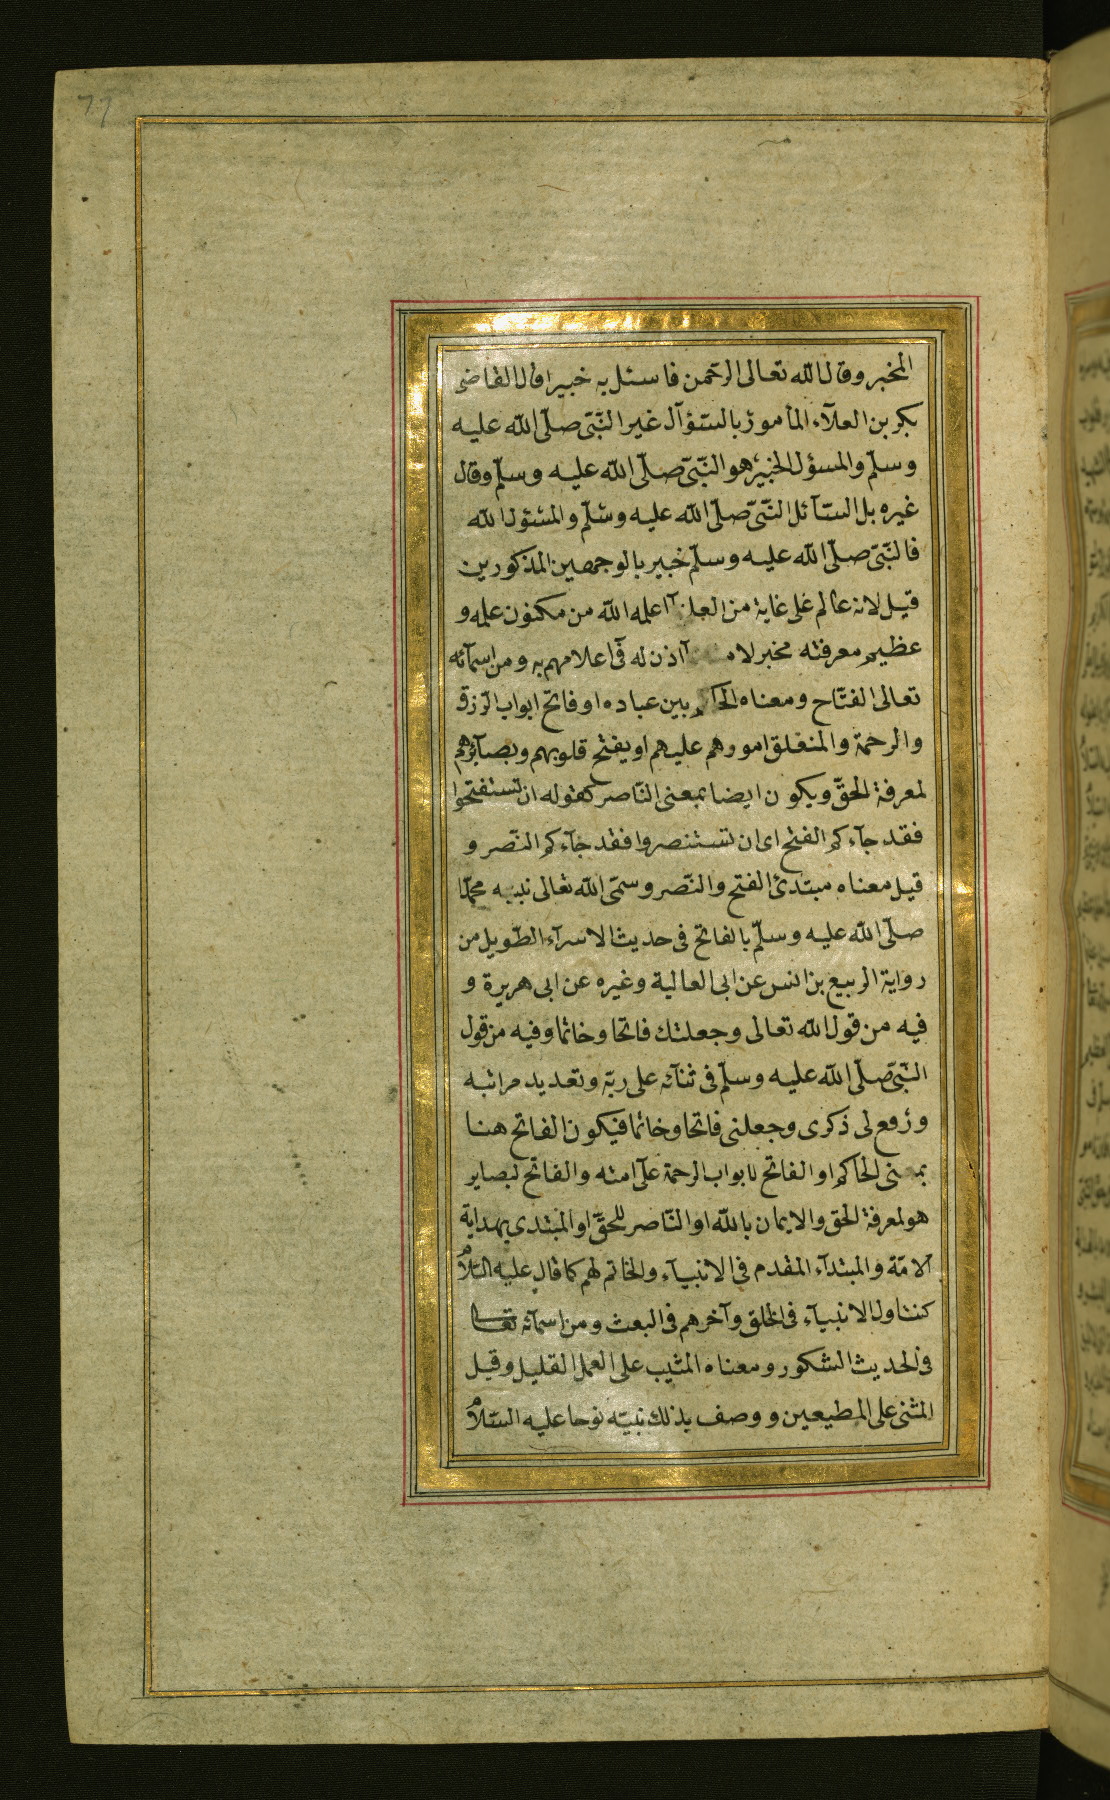 المخبر وقال الله تعالى الرحمن فاسئل به خبيرا قال القاضى
بكر بن العلآء المأمور بالسّؤآل غير النّبىّ صلّى الله عليه
وسلّم والمسؤل الخبير هو النّبىّ صلّى الله عليه وسلّم وقال
غيره بل السّآئل النّبىّ صلّى الله عليه وسلّم والمسئول الله
فالنّبىّ صلّى الله عليه وسلّم خبير بالوجهين المذكورين
قيل لانه عالم على غاية من العلم اعلمه الله من مكنون علمه و
عظيم معرفته مخبر لامته آاذن له فى اعلامهم به ومن اسمآئه
تعالى الفتّاح ومعناه الحاكم بين عباده او فاتح ابواب الرّزق
والرحمة والمنغلق امورهم عليهم او يفتح قلوبهم وبصآئرهم
لمعرفة الحقّ ويكون ايضا بمعنى النّاصر كقوله ان تستفتحوا
فقد جآءكم الفتح اى ان تستنصروا فقد جآءكم النّصر و
قيل معناه مبتدئ الفتح والنّصر وسمّى الله تعالى نبيه محمّدا
صلّى الله عليه وسلّم بالفاتح فى حديث الاسرآء الطّويل من
رواية الربيع بن انس عن ابى العالية وغيره عن ابى هريرة و
فيه من قول الله تعالى وجعلتك فاتحا وخاتما وفيه من قول
النّبىّ صلّى الله عليه وسلّم فى ثنآئه على ربّه وتعديد مراتبه
ورفع لى ذكرى وجعلنى فاتحا وخاتما فيكون الفاتح هنا
بمعنى الحاكم او الفاتح لابواب الرحمة على امته والفاتح لبصاير
هو لمعرفة الحق والايمان بالله او النّاصر للحقّ او المبتدى بهداية
الامّة والمبتدآء المقدم فى الانبيآء والخاتم لهم كما قال عليه السّلام
كنت اول الانبيآء فى الخلق وآخرهم فى البعث ومن اسمآئه تعالى
فى الحديث الشكور ومعناه المثيب على العمل القليل وقيل
المثنى على المطيعين ووصف بذلك نبيّه نوحا عليه السّلام